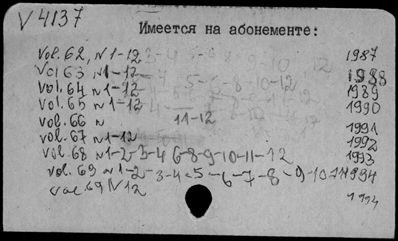 V 4137
Имеется на абонементе:
Vol. 62, N 1-12 1987
Vol 63, N 1-12 1988
Vol. 64 N 1-12 1989
Vol. 65 N 1-12 1990
Vol. 66 N 11-12 1991
Vol. 67 N 1-12 1992
Vol. 68 N 1-2-3-4 6-8-9-10-11-12 1993
Vol. 69 N 1-2-3-4-5-6-7-8-9-10-11 1994
Vol. 69 N 12 1994